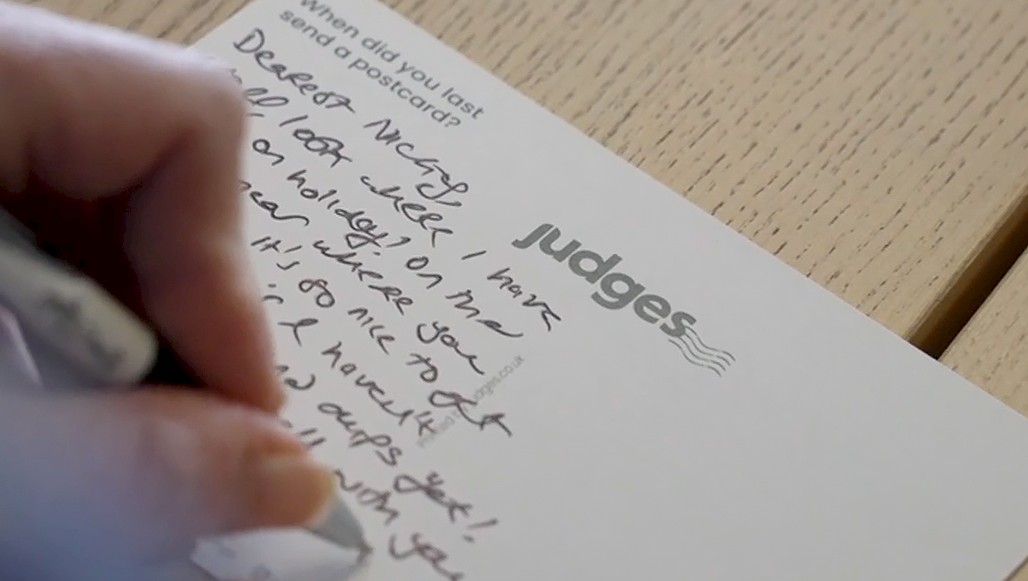 When did you last
send a postcard?
Dearest Nicky,
look where I have
on holiday, on the
near where you
It's so nice to get
I haven't
cups yet!
with you
judges
judges.co.uk